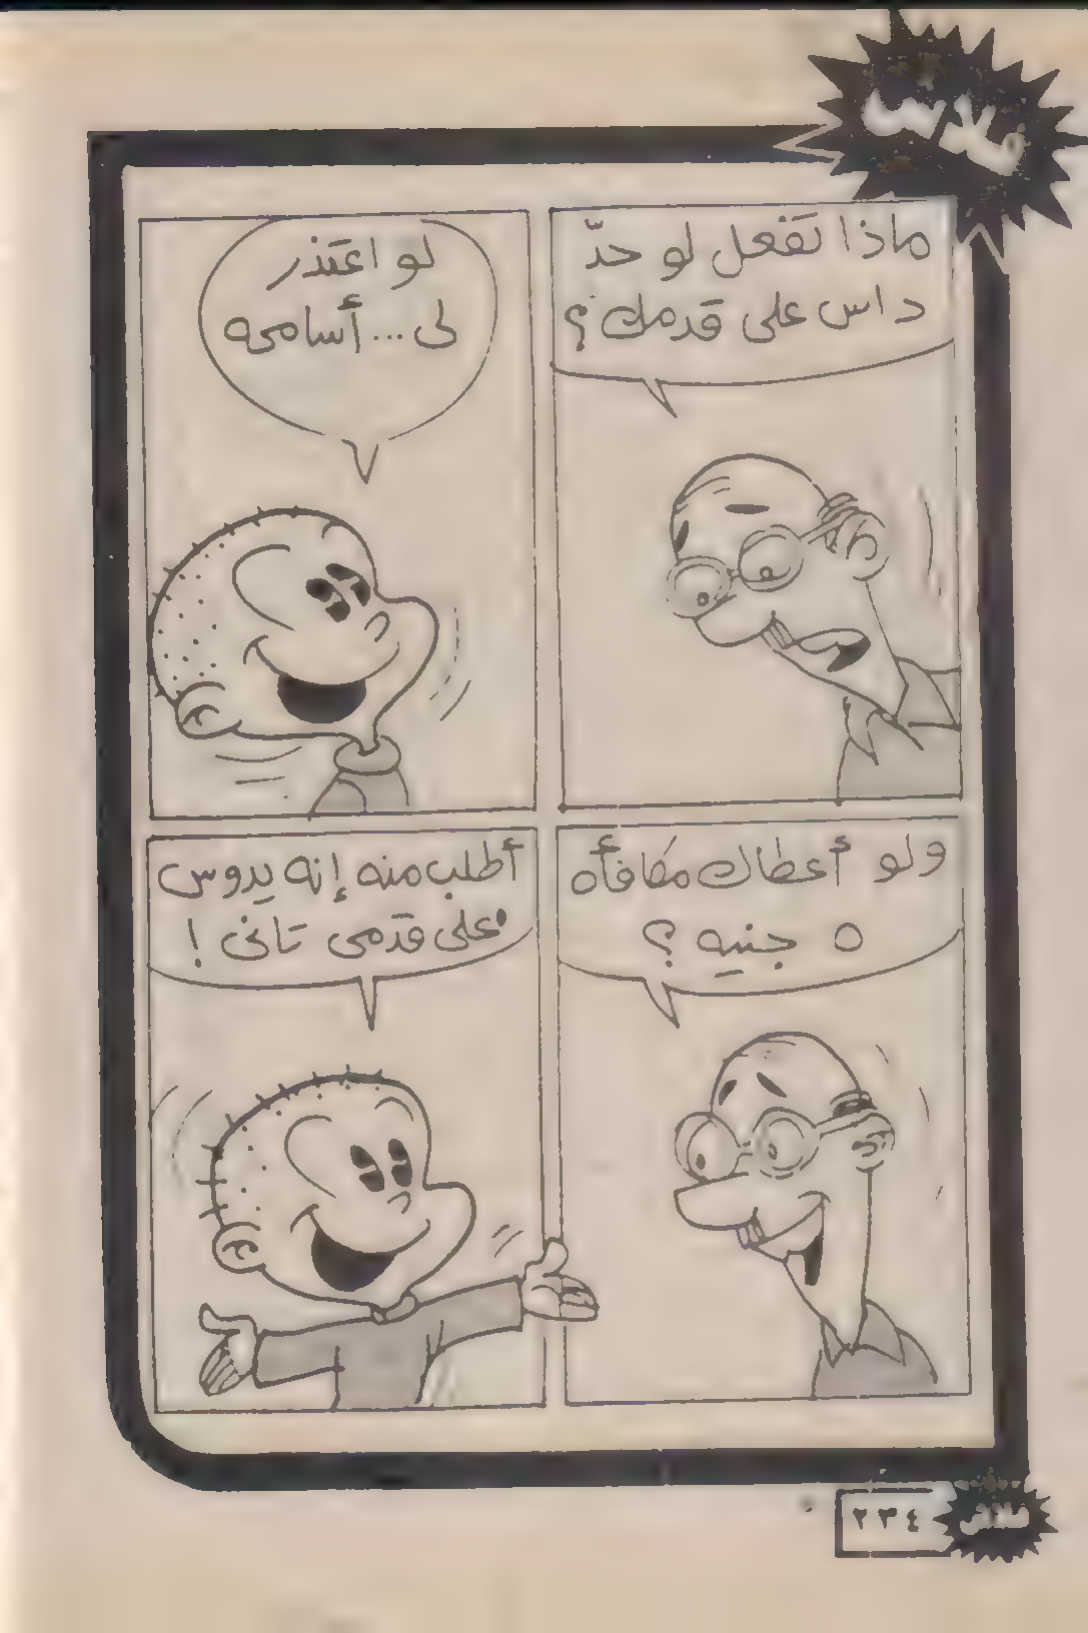 فلاش
ماذا تفعل لو حدّ
داس على قدمك؟
لو اعتذر
لى... أسامحه
ولو أعطاك مكافأه
٥ جنيه؟
أطلب منه إنه يدوس
على قدمى تانى!
٢٣٤
فلاش